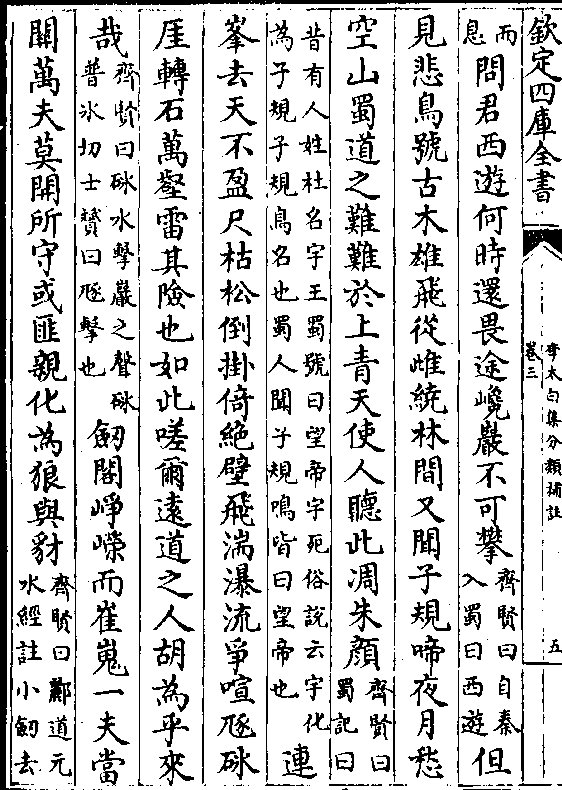 欽定四庫全書
李太白集分類補註
卷三
五
而息問君西遊何時還畏途巉巖不可攀齊賢曰自秦入蜀曰西遊但
見悲鳥號古木雄飛從雌繞林間又聞子規啼夜月愁
空山蜀道之難難於上青天使人聽此凋朱顏齊賢曰蜀記曰
昔有人姓杜名宇王蜀號曰望帝宇死俗說云宇化為子規子規鳥名也蜀人聞子規鳴皆曰望帝也連
峯去天不盈尺枯松倒掛倚絶壁飛湍瀑流爭喧豗砯
厓轉石萬壑雷其險也如此嗟爾遠道之人胡為乎來
哉齊賢曰砯水擊巖之聲砯普氷切士贇曰豗擊也劒閣崢嶸而崔嵬一夫當
關萬夫莫開所守或匪親化為狼與豺齊賢曰酈道元水經註小劒去